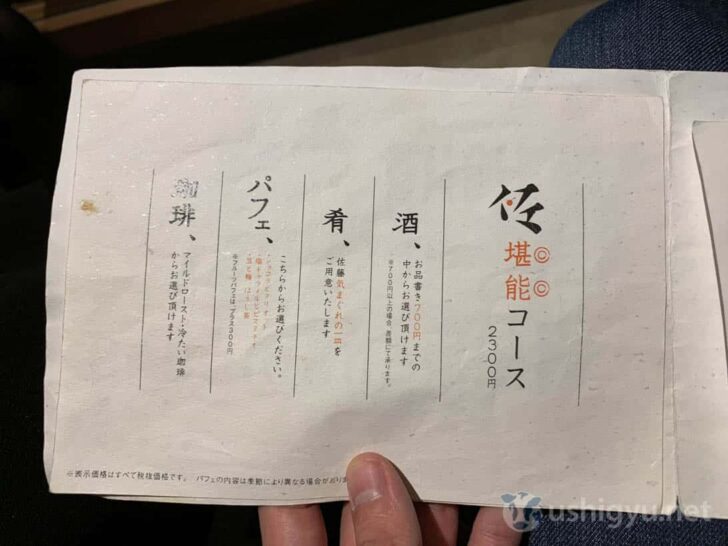 佐 堪能コース
2300円
酒、
お品書き700円までの
中からお選び頂けます
※700円以上の場合、差額にて承ります。
肴、
佐藤気まぐれの一皿を
ご用意いたします
パフェ、
こちらからお選びください。
・塩キャラメルとピスタチオ
・豆と梅、ほうじ茶
※フルーツパフェは、プラス300円
珈琲、
マイルドロースト・冷たい珈琲
からお選び頂けます
※表示価格はすべて税抜価格です。 パフェの内容は季節により異なる場合がありま
ushigyu.net